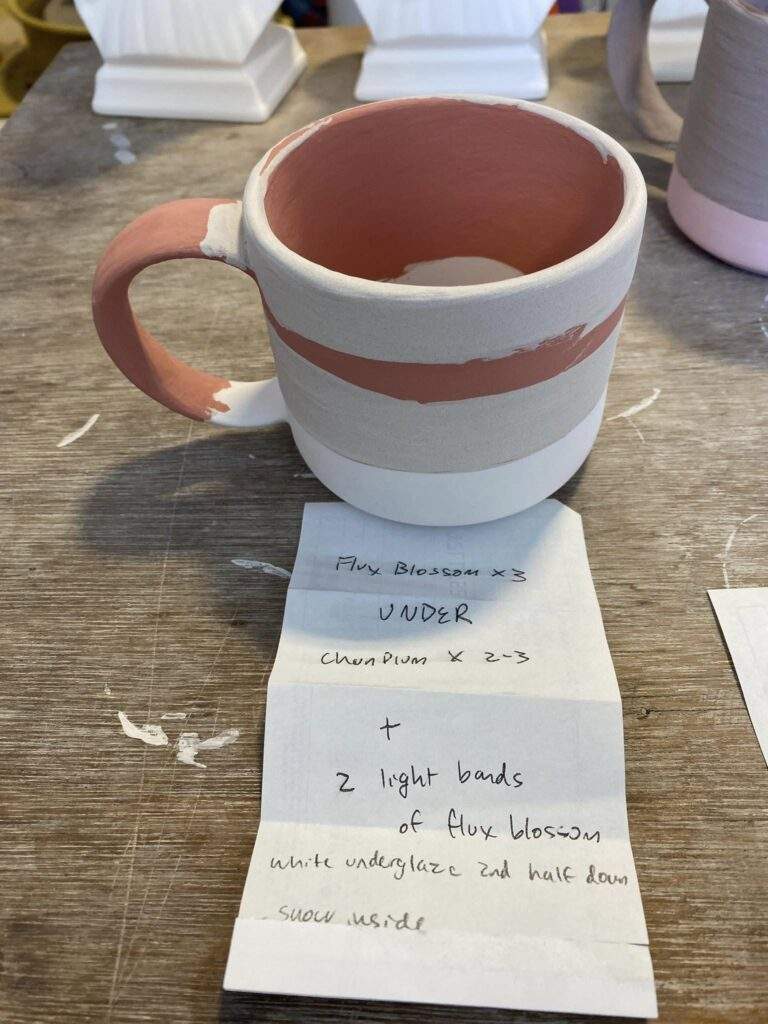 Flux Blossom x3
UNDER
x 2-3
+
2 light bands
of flux blossom
white underglaze 2nd half down
snow inside